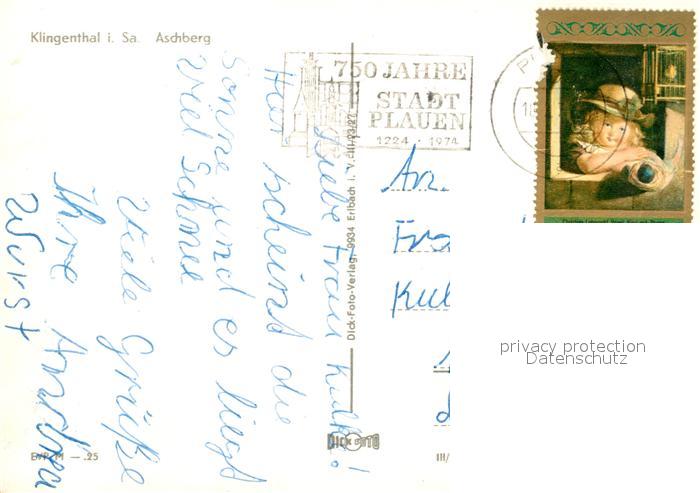 Klingenthal i. Sa. Aschberg
750 JAHRE
STADT
PLAUEN
1224 · 1974
Liebe Frau Kulke!
Hier scheint die
Sonne und es liegt
viel Schnee
Viele Grüße
Ihre Andrea
Wurst
Dick-Foto-Verlag, 9934 Erlbach i. V.
DICK FOTO
EVP M —.25
III/
An
Kul
privacy protection
Datenschutz